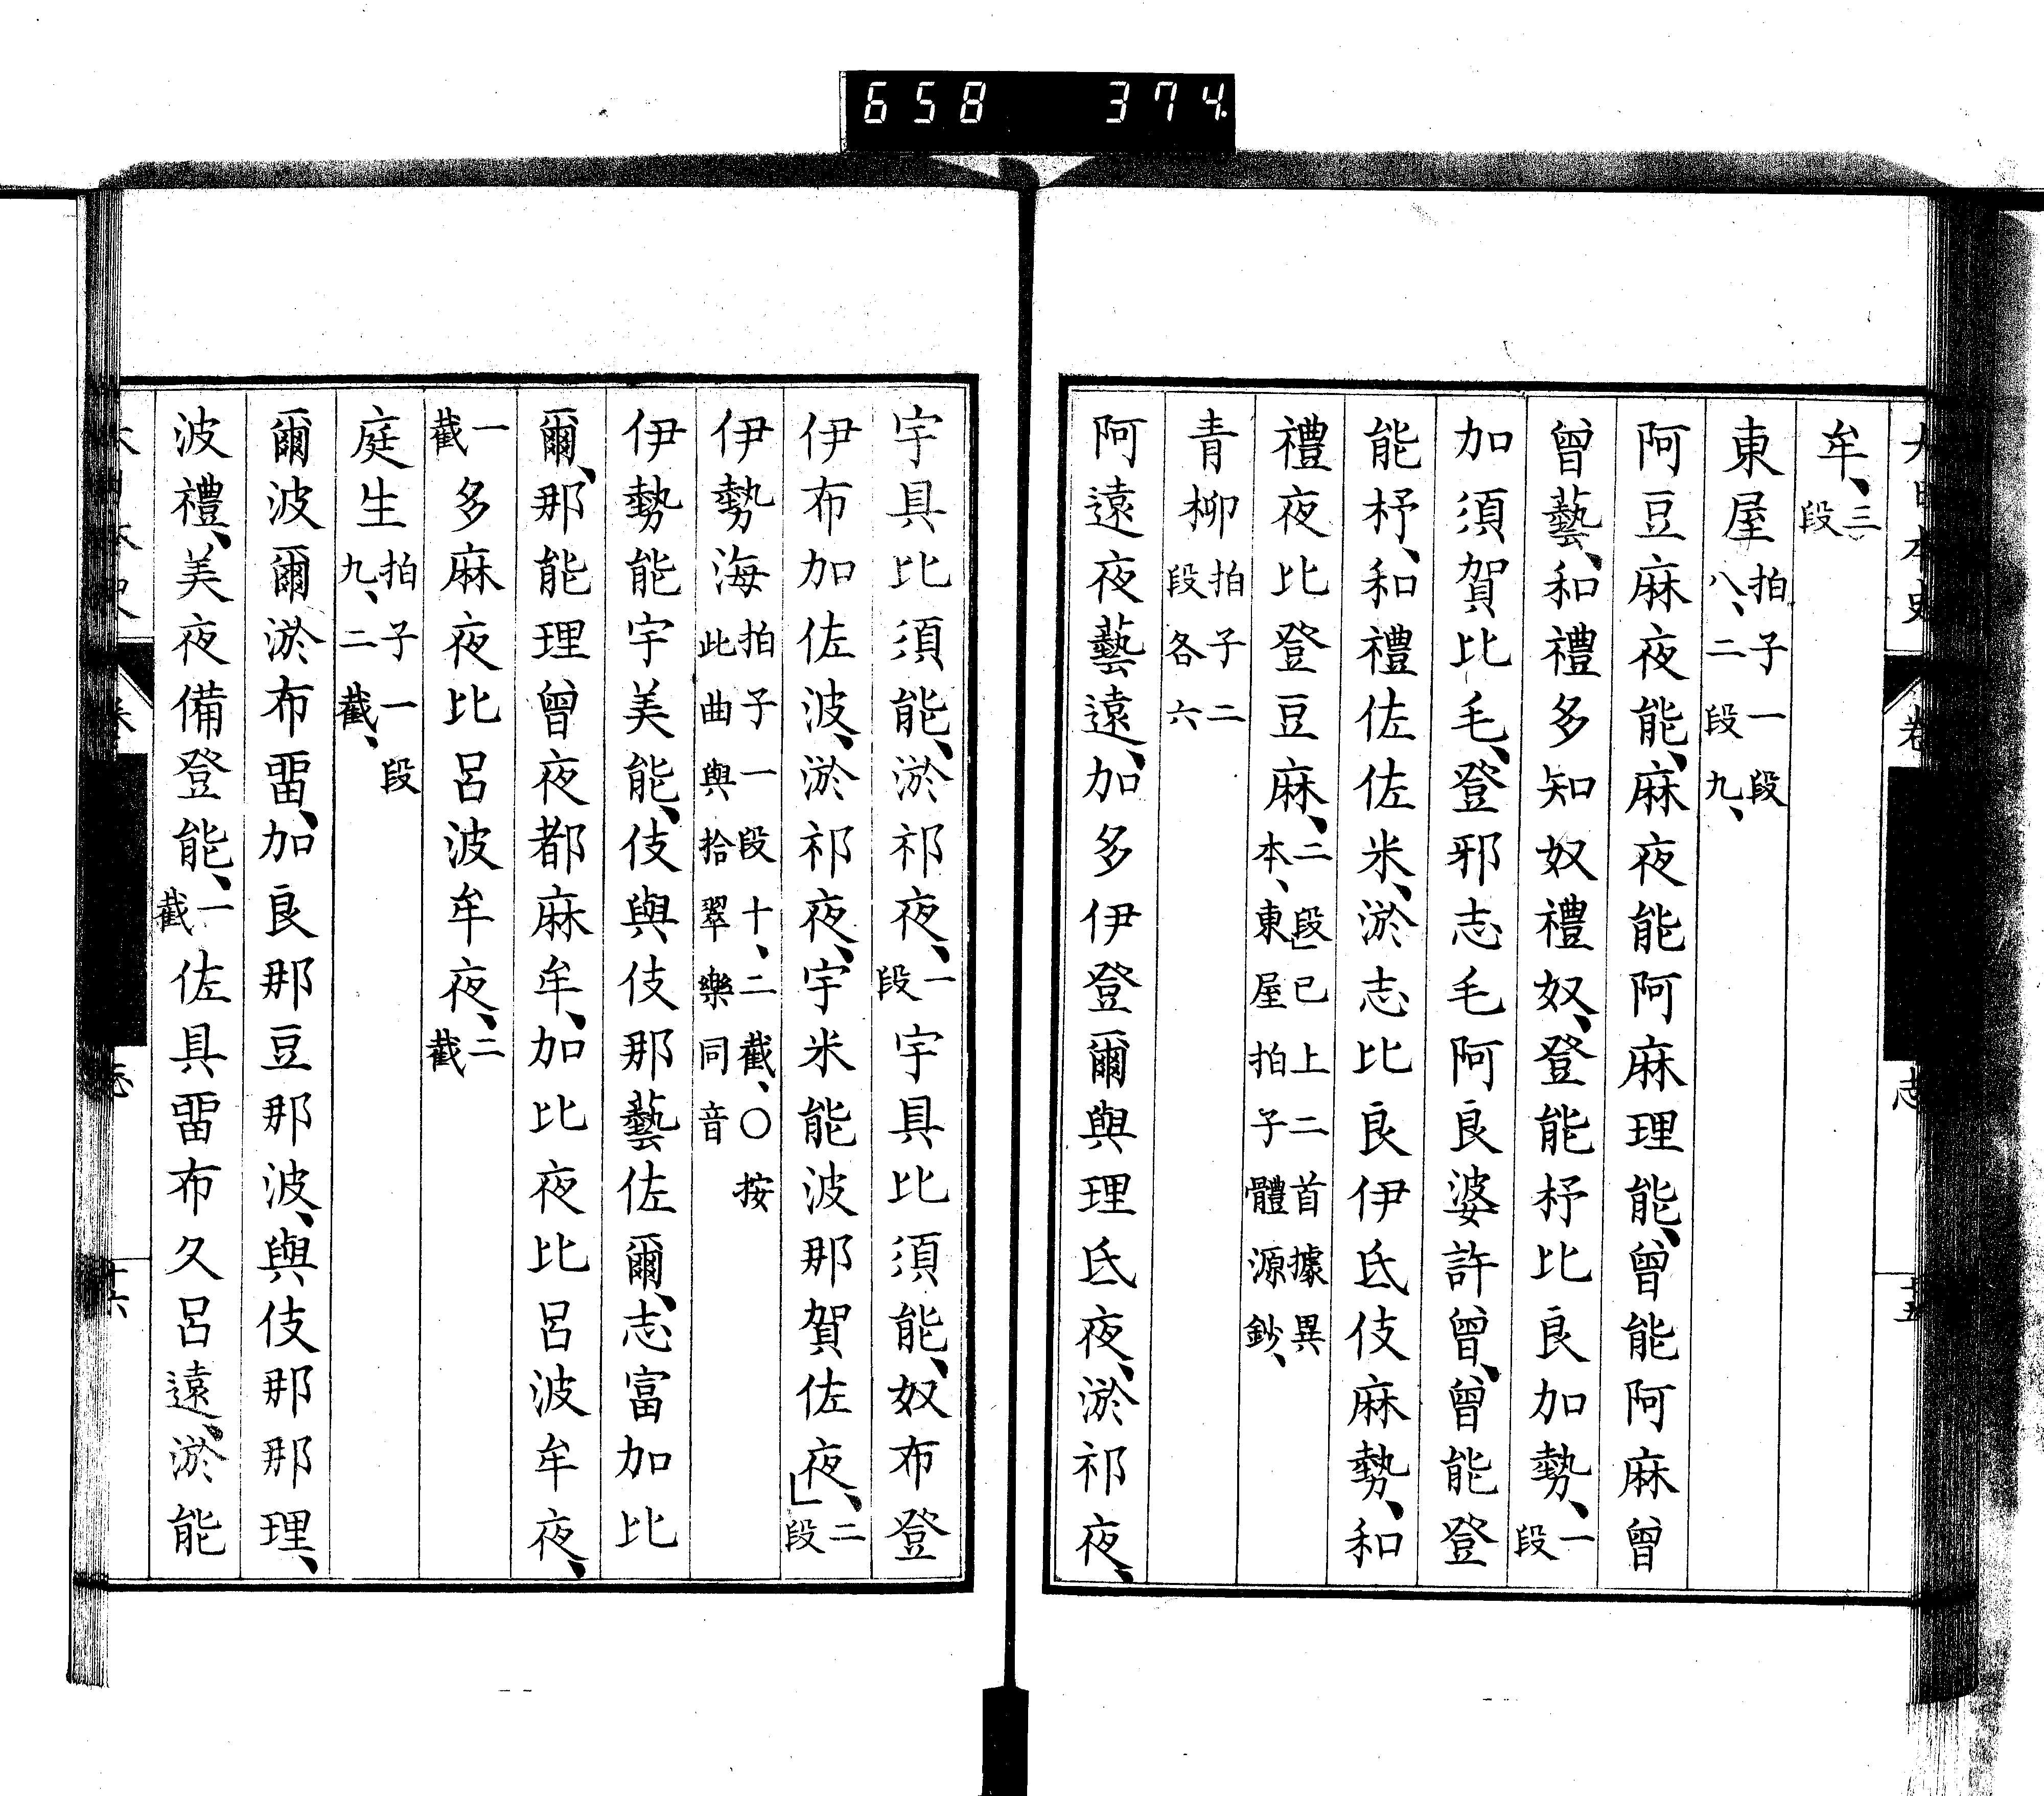 658 374.
牟、三段
東屋拍子一段八、二段九、
阿豆麻夜能、麻夜能阿麻理能、曾能阿麻曾
曾藝、和禮多知奴禮奴、登能杼比良加勢、一段
加須賀比毛、登邪志毛阿良婆許曾、曾能登
能杼、和禮佐佐米、淤志比良伊氐伎麻勢、和
禮夜比登豆麻、二段已上二首據異本、東屋拍子體源鈔、
青柳拍子二段各六
阿遠夜藝遠、加多伊登爾與理氐夜、淤祁夜、
宇具比須能、淤祁夜、一段宇具比須能、奴布登
伊布加佐波、淤祁夜、宇米能波那賀佐夜、二段
伊勢海拍子一段十、二截、〇按此曲與拾翠樂同音
伊勢能宇美能、伎與伎那藝佐爾、志富加比
爾、那能理曾夜都麻牟、加比夜比呂波牟夜、
一截多麻夜比呂波牟夜、二截
庭生拍子一段九、二截、
爾波爾淤布畱、加良那豆那波、與伎那那理、
波禮、美夜備登能、一截佐具畱布久呂遠、淤能